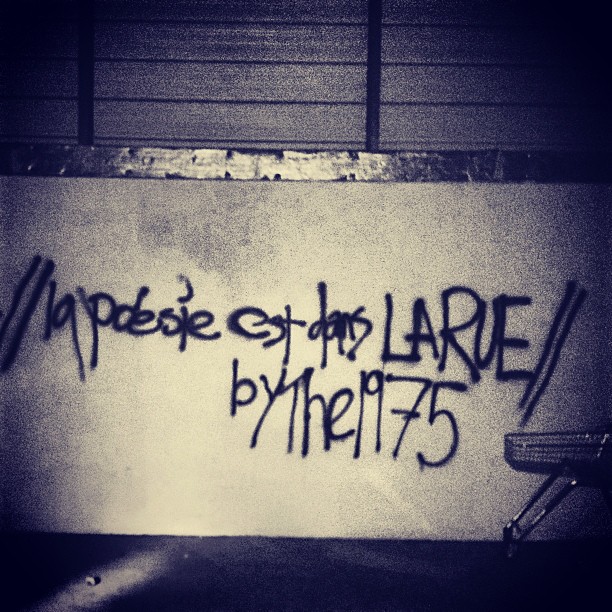 //la poésie est dans LARUE//
by The1975